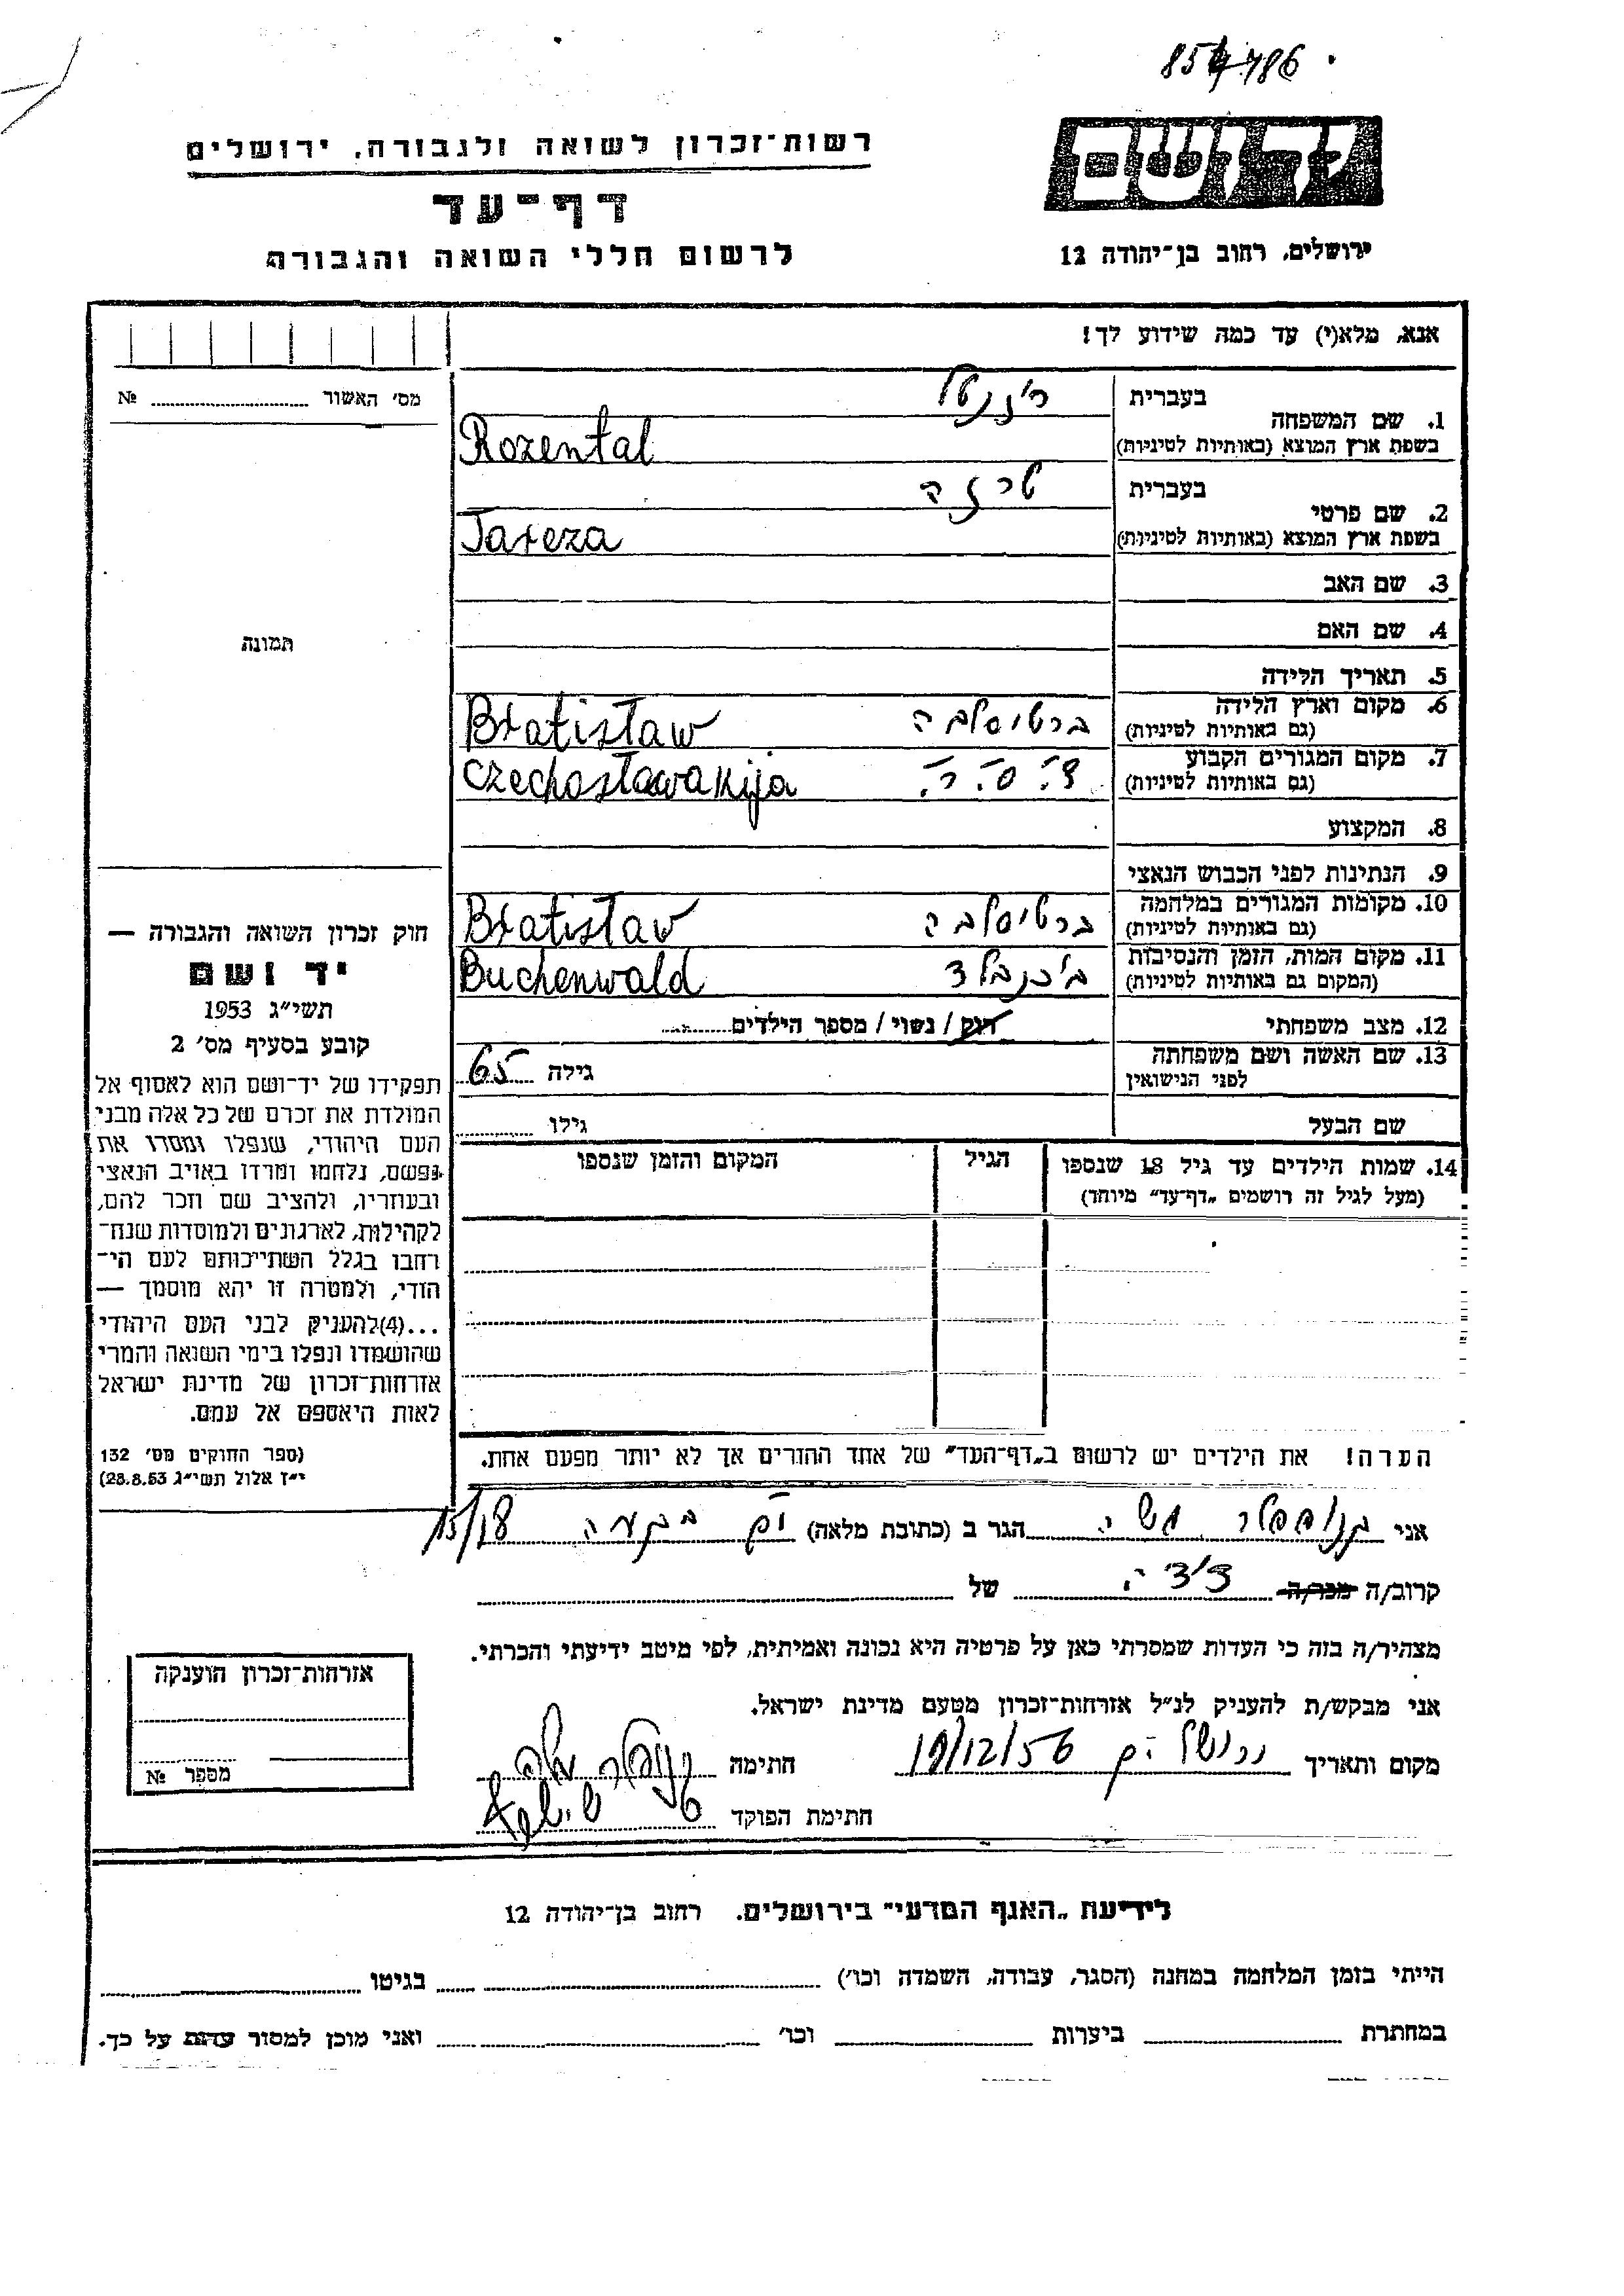 786
רשות-זכרון לשואה ולגבורה, ירושלים
יד ושם
דף-עד
לרשום חללי השואה והגבורה
ירושלים, רחוב בן-יהודה 12
אנא, מלא(י) עד כמה שידוע לך!
מס' האשור № 
1. שם המשפחה בעברית
בשפת ארץ המוצא (באותיות לטיניות) Rozental
2. שם פרטי בעברית טרזה
בשפת ארץ המוצא (באותיות לטיניות) Tareza
3. שם האב
4. שם האם
תמונה
5. תאריך הלידה
6. מקום וארץ הלידה ברטיסלבה Bratislaw
(גם באותיות לטיניות)
7. מקום המגורים הקבוע צ'. ס. ר. Czechosławakija
(גם באותיות לטיניות)
8. המקצוע
9. הנתינות לפני הכבוש הנאצי
10. מקומות המגורים במלחמה ברטיסלבה Bratislaw
(גם באותיות לטיניות)
11. מקום המות, הזמן והנסיבות בוכנבלד Buchenwald
(המקום גם באותיות לטיניות)
12. מצב משפחתי רווק / נשוי / מספר הילדים
13. שם האשה ושם משפחתה גילה 65
לפני הנישואין
שם הבעל גילו
14. שמות הילדים עד גיל 18 שנספו הגיל המקום והזמן שנספו
(מעל לגיל זה רושמים „דף-עד" מיוחד)
חוק זכרון השואה והגבורה —
יד ושם
תשי"ג 1953
קובע בסעיף מס' 2
תפקידו של יד-ושם הוא לאסוף אל
המולדת את זכרם של כל אלה מבני
העם היהודי, שנפלו ומסרו את
נפשם, נלחמו ומרדו באויב הנאצי
ובעוזריו, ולהציב שם וזכר להם,
לקהילות, לארגונים ולמוסדות שנח-
רבו בגלל השתייכותם לעם הי-
הודי, ולמטרה זו יהא מוסמך —
...(4)להעניק לבני העם היהודי
שהושמדו ונפלו בימי השואה והמרי
אזרחות-זכרון של מדינת ישראל
לאות היאספם אל עמם.
(ספר החוקים מס' 132
י"ז אלול תשי"ג 28.8.53)
הערה! את הילדים יש לרשום ב„דף-העד" של אחד ההורים אך לא יותר מפעם אחת.
אני הגר ב (כתובת מלאה) 15/18
קרוב/ה מכר/ה של
מצהיר/ה בזה כי העדות שמסרתי כאן על פרטיה היא נכונה ואמיתית, לפי מיטב ידיעתי והכרתי.
אני מבקש/ת להעניק לנ"ל אזרחות-זכרון מטעם מדינת ישראל.
מקום ותאריך ירושלים 19/12/56 חתימה
חתימת הפוקד
אזרחות-זכרון הוענקה
מספר №
לידיעת „האגף המדעי" בירושלים. רחוב בן-יהודה 12
הייתי בזמן המלחמה במחנה (הסגר, עבודה, השמדה וכו') בגיטו
במחתרת ביערות וכו' ואני מוכן למסור עדות על כך.